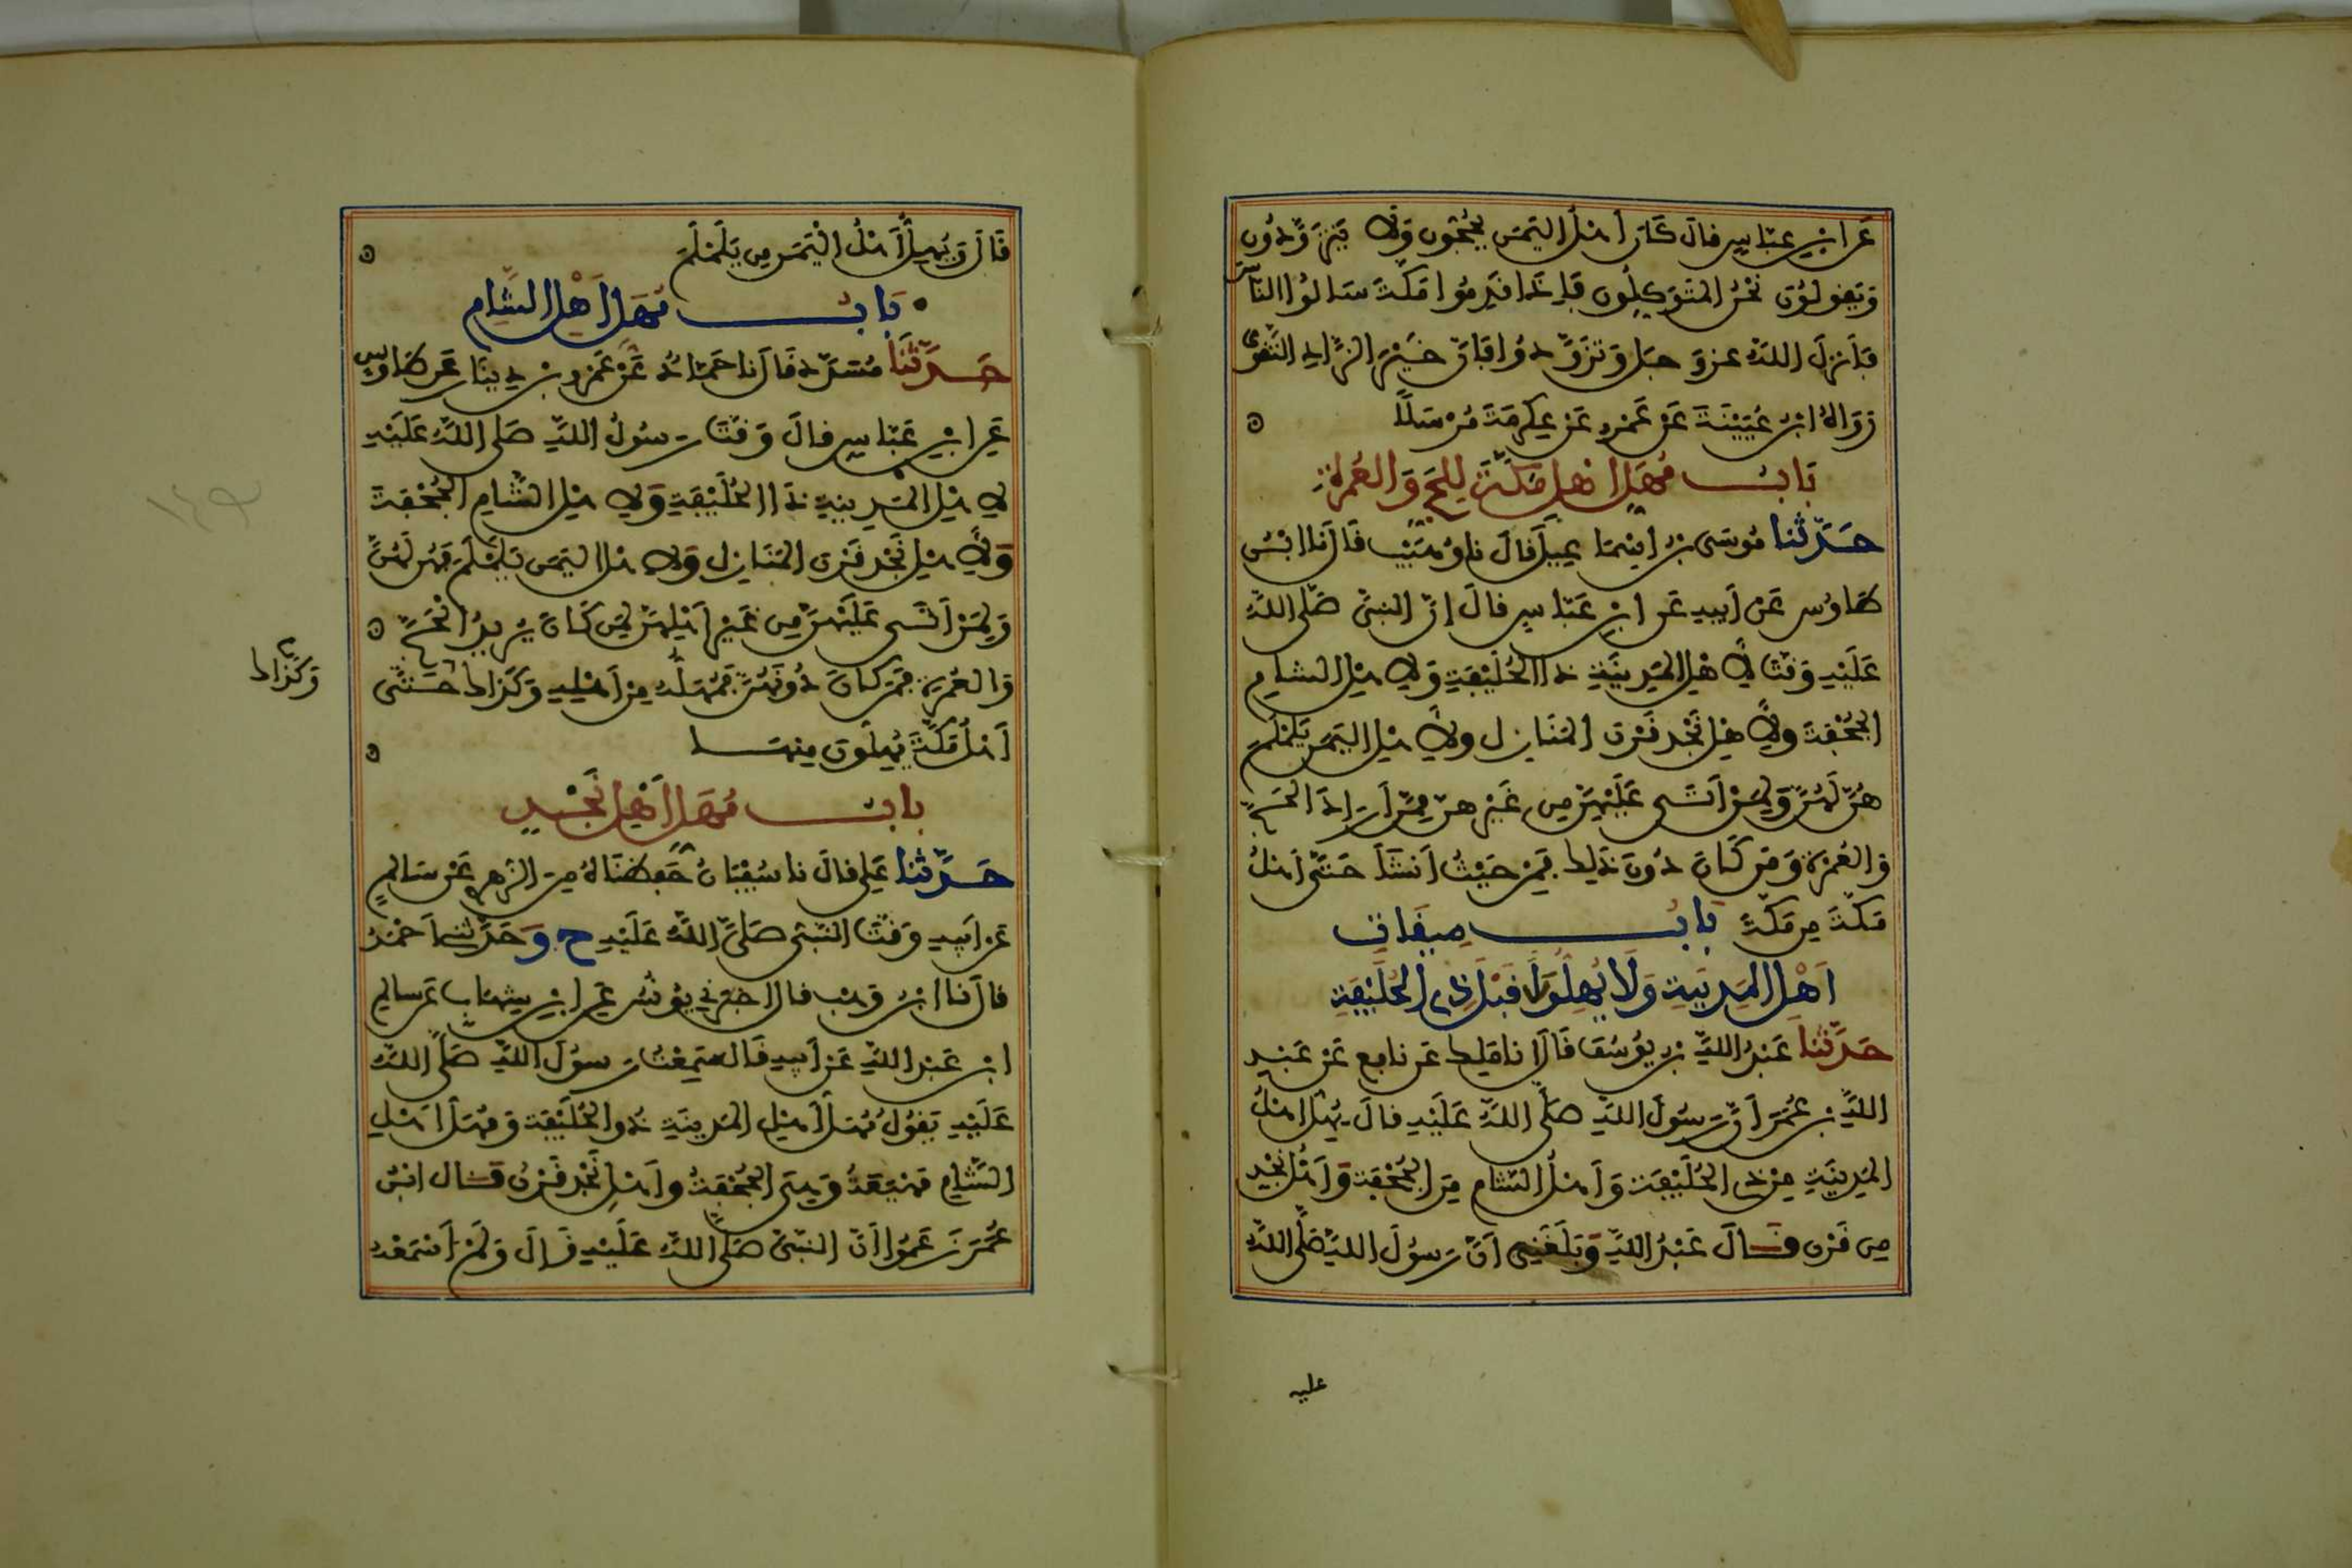 عن ابن عباس قال كان أهل اليمن يحجون ولا يتزودون
ويقولون نحن المتوكلون فإذا قدموا مكة سالوا الناس
فأنزل الله عز وجل وتزودوا فإن خير الزاد التقوى
رواه ابن عيينة عن عمرو عن عكرمة مرسلا
باب مهل أهل مكة للحج والعمرة
حدثنا موسى بن اسماعيل قال نا وهيب قال نا ابن
طاوس عن أبيه عن ابن عباس قال إن النبي صلى الله
عليه وقت لأهل المدينة ذا الحليفة ولأهل الشام
الجحفة ولأهل نجد قرن المنازل ولأهل اليمن يلملم
هن لهن ولمن أتى عليهن من غيرهن ممن أراد الحج
والعمرة ومن كان دون ذلك فمن حيث أنشأ حتى أهل
مكة من مكة باب ميقات
أهل المدينة ولا يهلوا قبل ذي الحليفة
حدثنا عبد الله بن يوسف قال انا مالك عن نافع عن عبد
الله بن عمر أن رسول الله صلى الله عليه قال يهل أهل
المدينة من ذي الحليفة وأهل الشام من الجحفة وأهل نجد
من قرن قال عبد الله وبلغني أن رسول الله صلى الله
عليه
قال ويهل أهل اليمن من يلملم
باب مهل أهل الشام
حدثنا مسدد قال نا حماد عن عمرو بن دينار عن طاوس
عن ابن عباس قال وقت رسول الله صلى الله عليه
لأهل المدينة ذا الحليفة ولأهل الشام الجحفة
ولأهل نجد قرن المنازل ولأهل اليمن يلملم فهن لهن
ولمن أتى عليهن من غير أهلهن لمن كان يريد الحج
والعمرة فمن كان دونهن فمهله من أهله وكذاك حتى
وكذاك
أهل مكة يهلون منها
باب مهل أهل نجد
حدثنا علي قال نا سفيان حفظناه من الزهري عن سالم
عن أبيه وقت النبي صلى الله عليه ح وحدثنا أحمد
قال نا ابن وهب قال اخبرني يونس عن ابن شهاب عن سالم
ابن عبد الله عن أبيه قال سمعت رسول الله صلى الله
عليه يقول مهل أهل المدينة ذو الحليفة ومهل أهل
الشام مهيعة وهي الجحفة وأهل نجد قرن قال ابن
عمر زعموا أن النبي صلى الله عليه قال ولم أسمعه